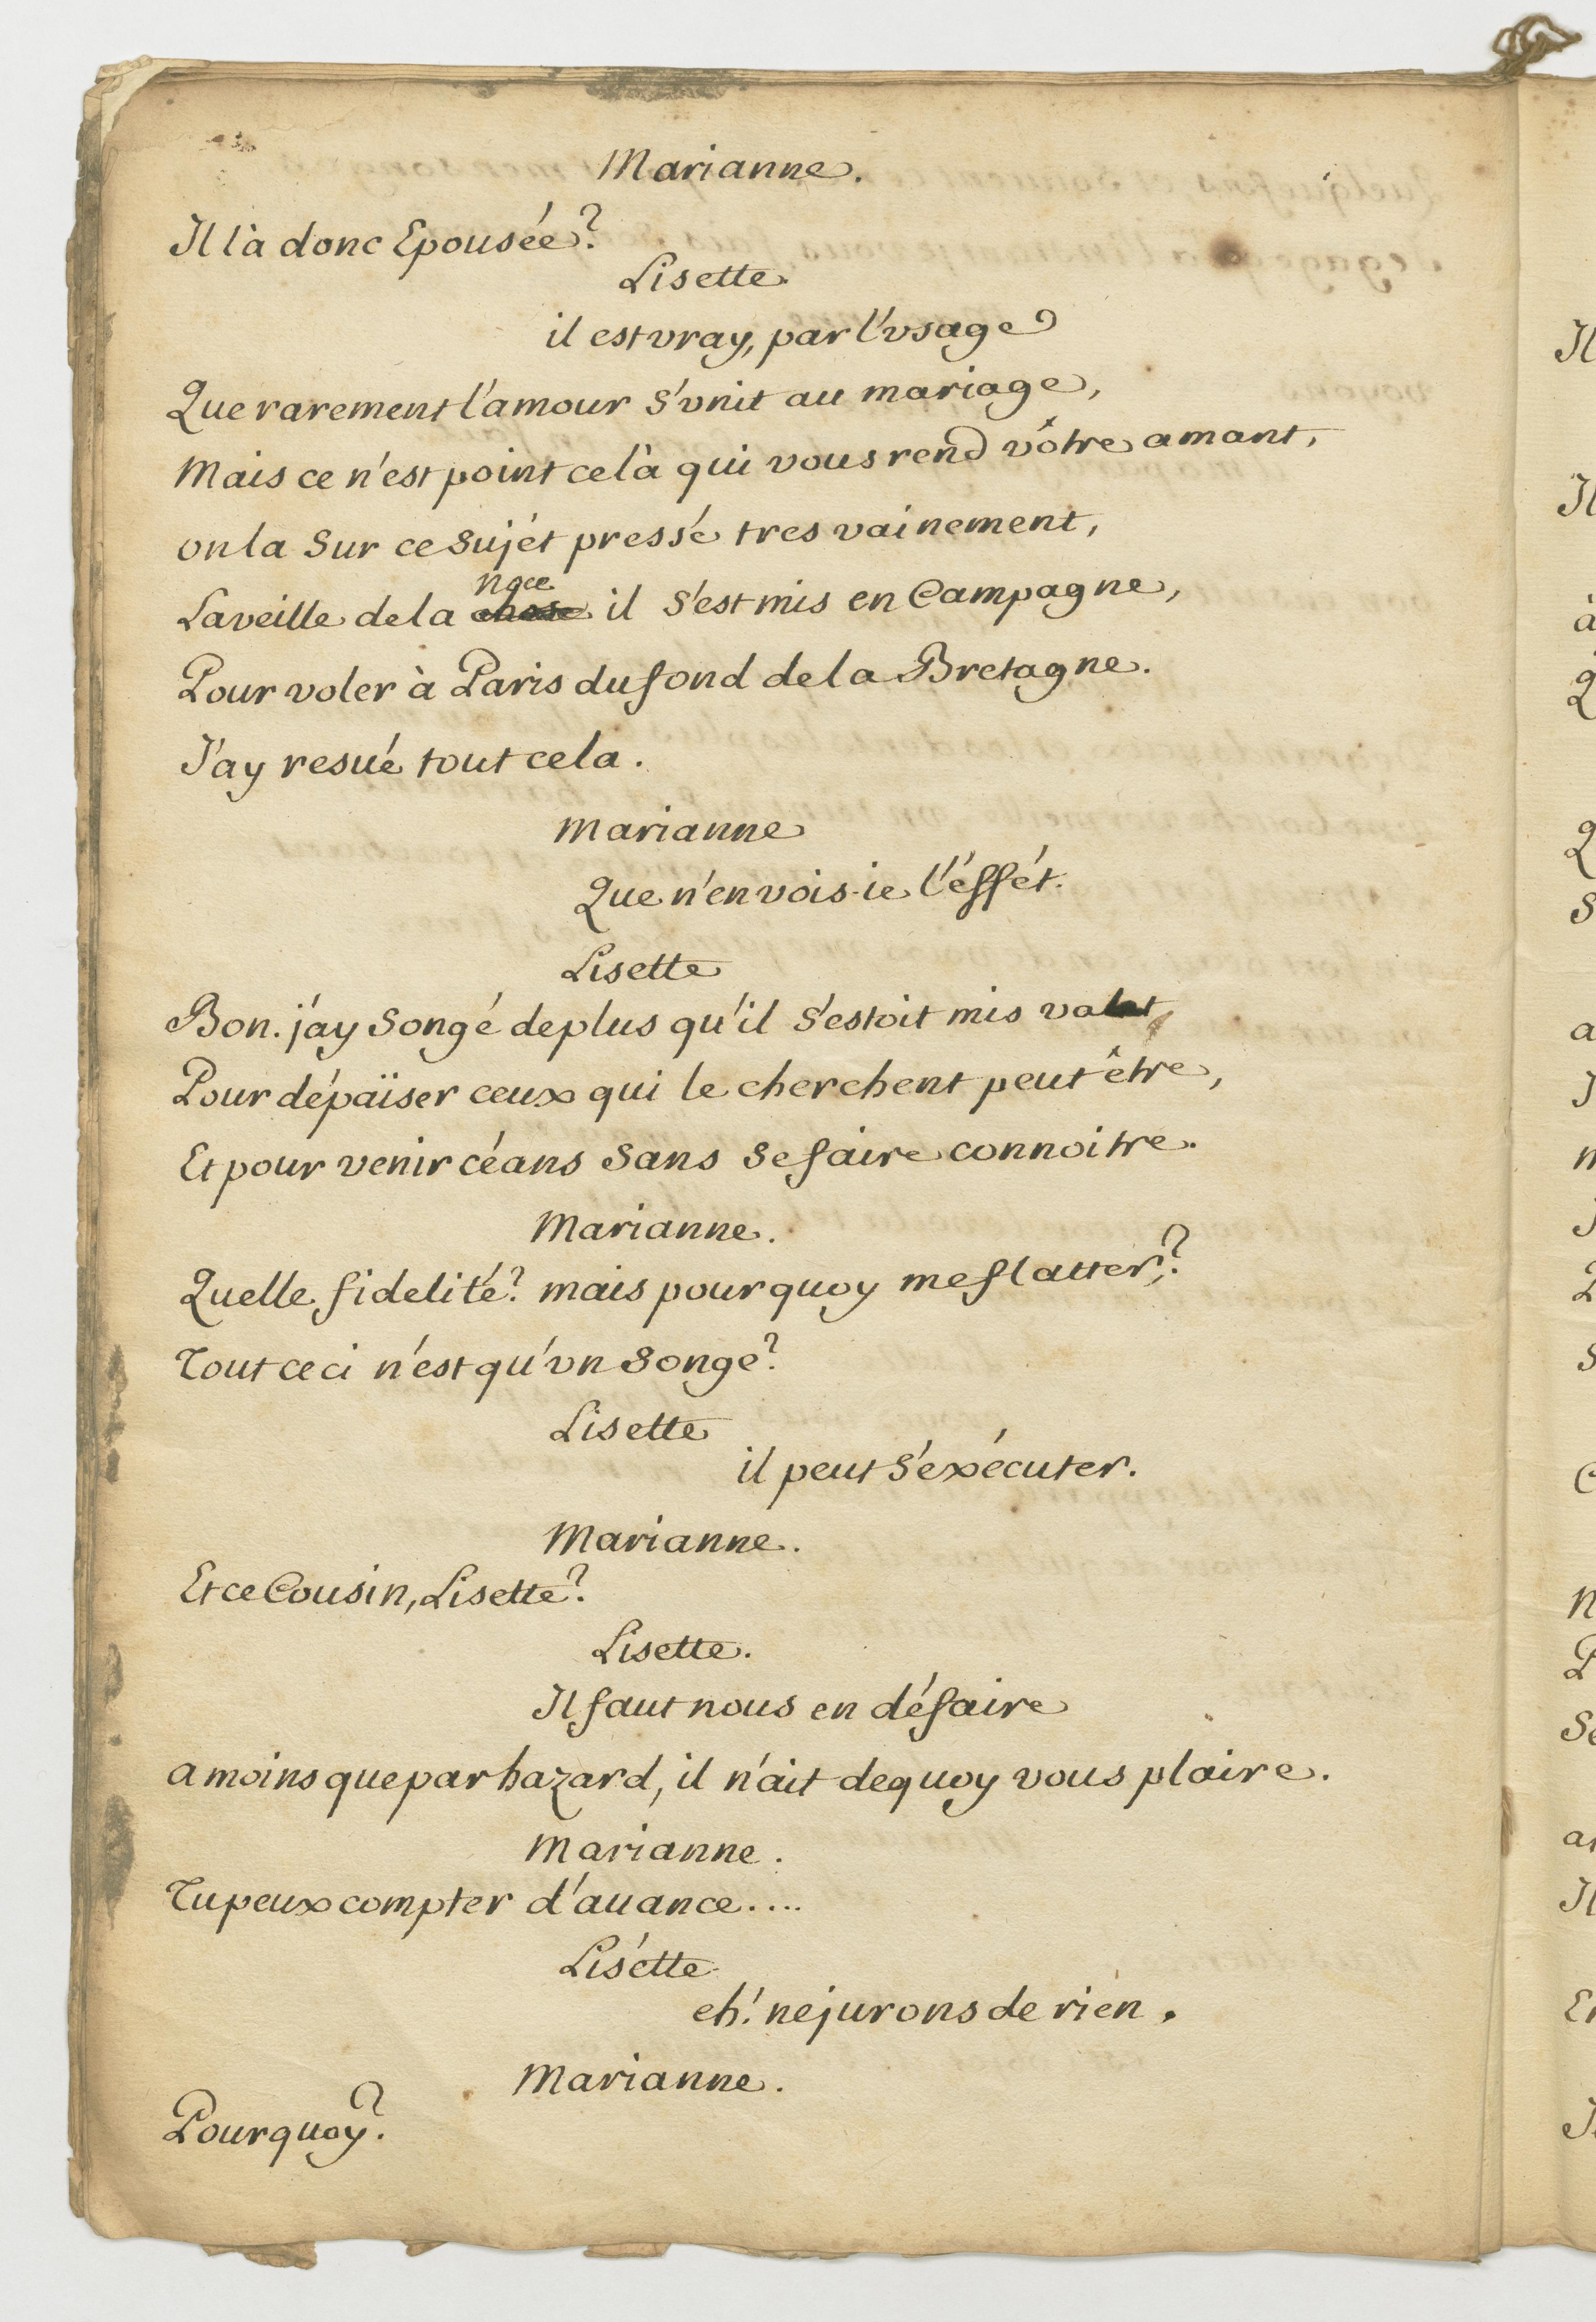 Marianne.
Il l'à donc Epousée?
Lisette
il est vray, par l'vsage
Que rarement l'amour s'vnit au mariage,
Mais ce n'est point celà qui vous rend vôtre amant,
on la sur ce sujét pressé tres vainement,
noce
La veille de la chose il s'est mis en Campagne,
Pour voler à Paris du fond de la Bretagne.
J'ay resué tout cela.
Marianne
Que n'en vois-ie l'éffét.
Lisette
Bon. j'ay songé de plus qu'il s'estoit mis valet,
Pour dépaïser ceux qui le cherchent peut être,
Et pour venir céans sans se faire connoitre.
Marianne.
Quelle fidelité? mais pourquoy me flatter?
Tout ceci n'est qu'vn songe?
Lisette
il peut s'exécuter.
Marianne.
Et ce Cousin, Lisette?
Lisette.
Il faut nous en défaire
a moins que par hazard, il n'ait dequoy vous plaire.
Marianne.
Tu peux compter d'auance....
Lisétte
eh! ne jurons de rien.
Marianne.
Pourquoy?